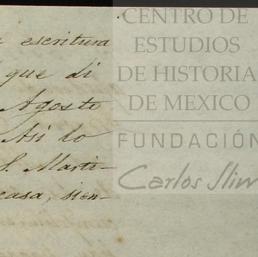 escritura
que di
Agosto
Así lo
S. Marti-
casa, sien-
CENTRO DE
ESTUDIOS
DE HISTORIA
DE MEXICO
FUNDACIÓN
Carlos Slim